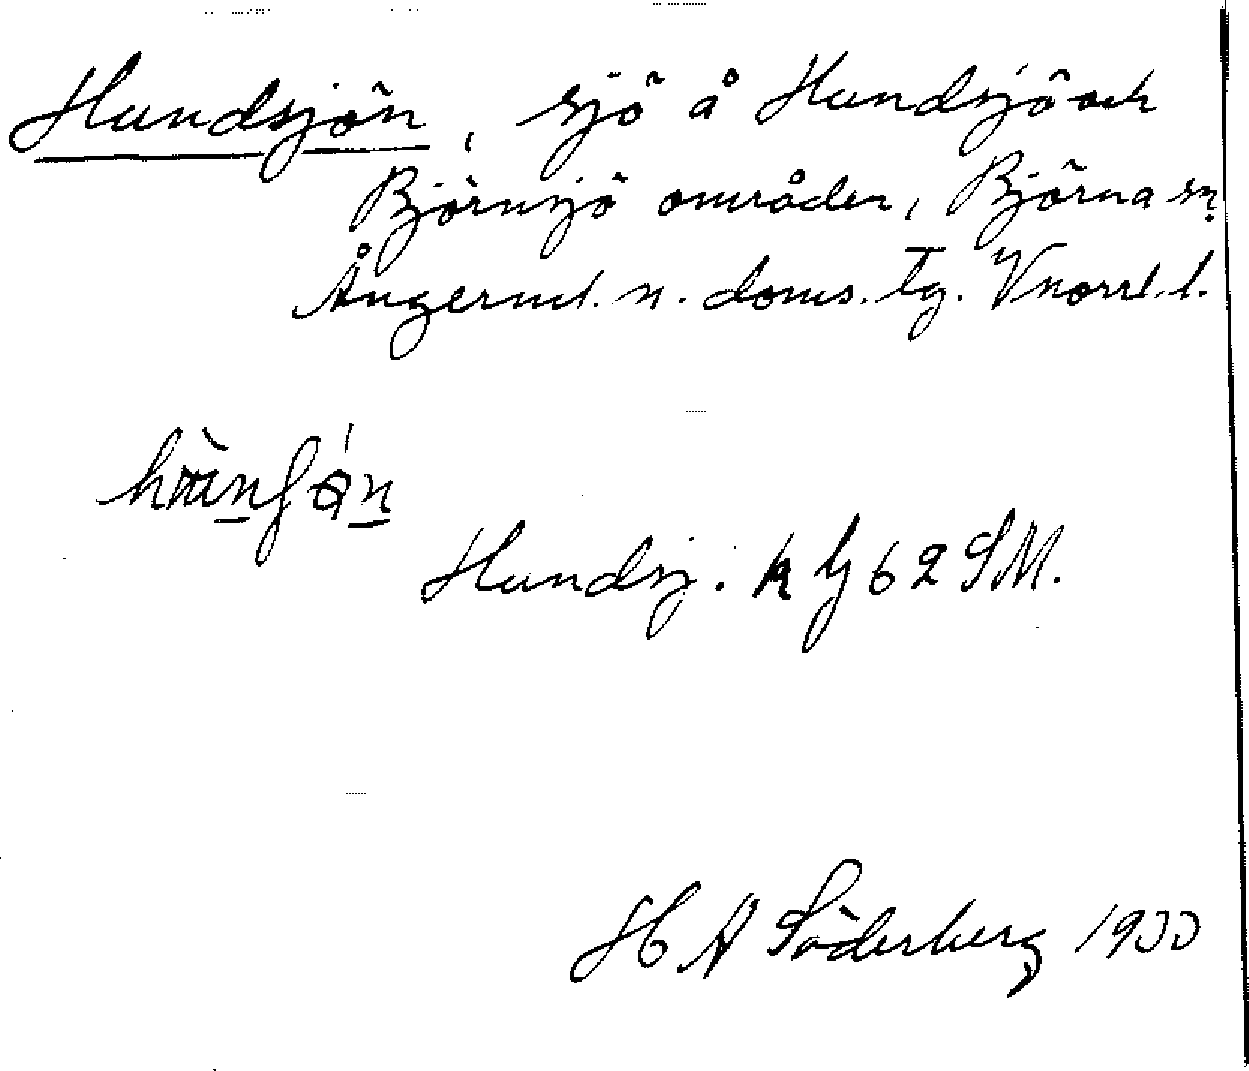 Hundsjön, sjö å Hundsjö och
Björnsjö områden, Björna sn.
Ångerml. n. doms. tg. Vnorrl. l.
Hundsj. k bl 62 SM.
H A Söderberg 1933